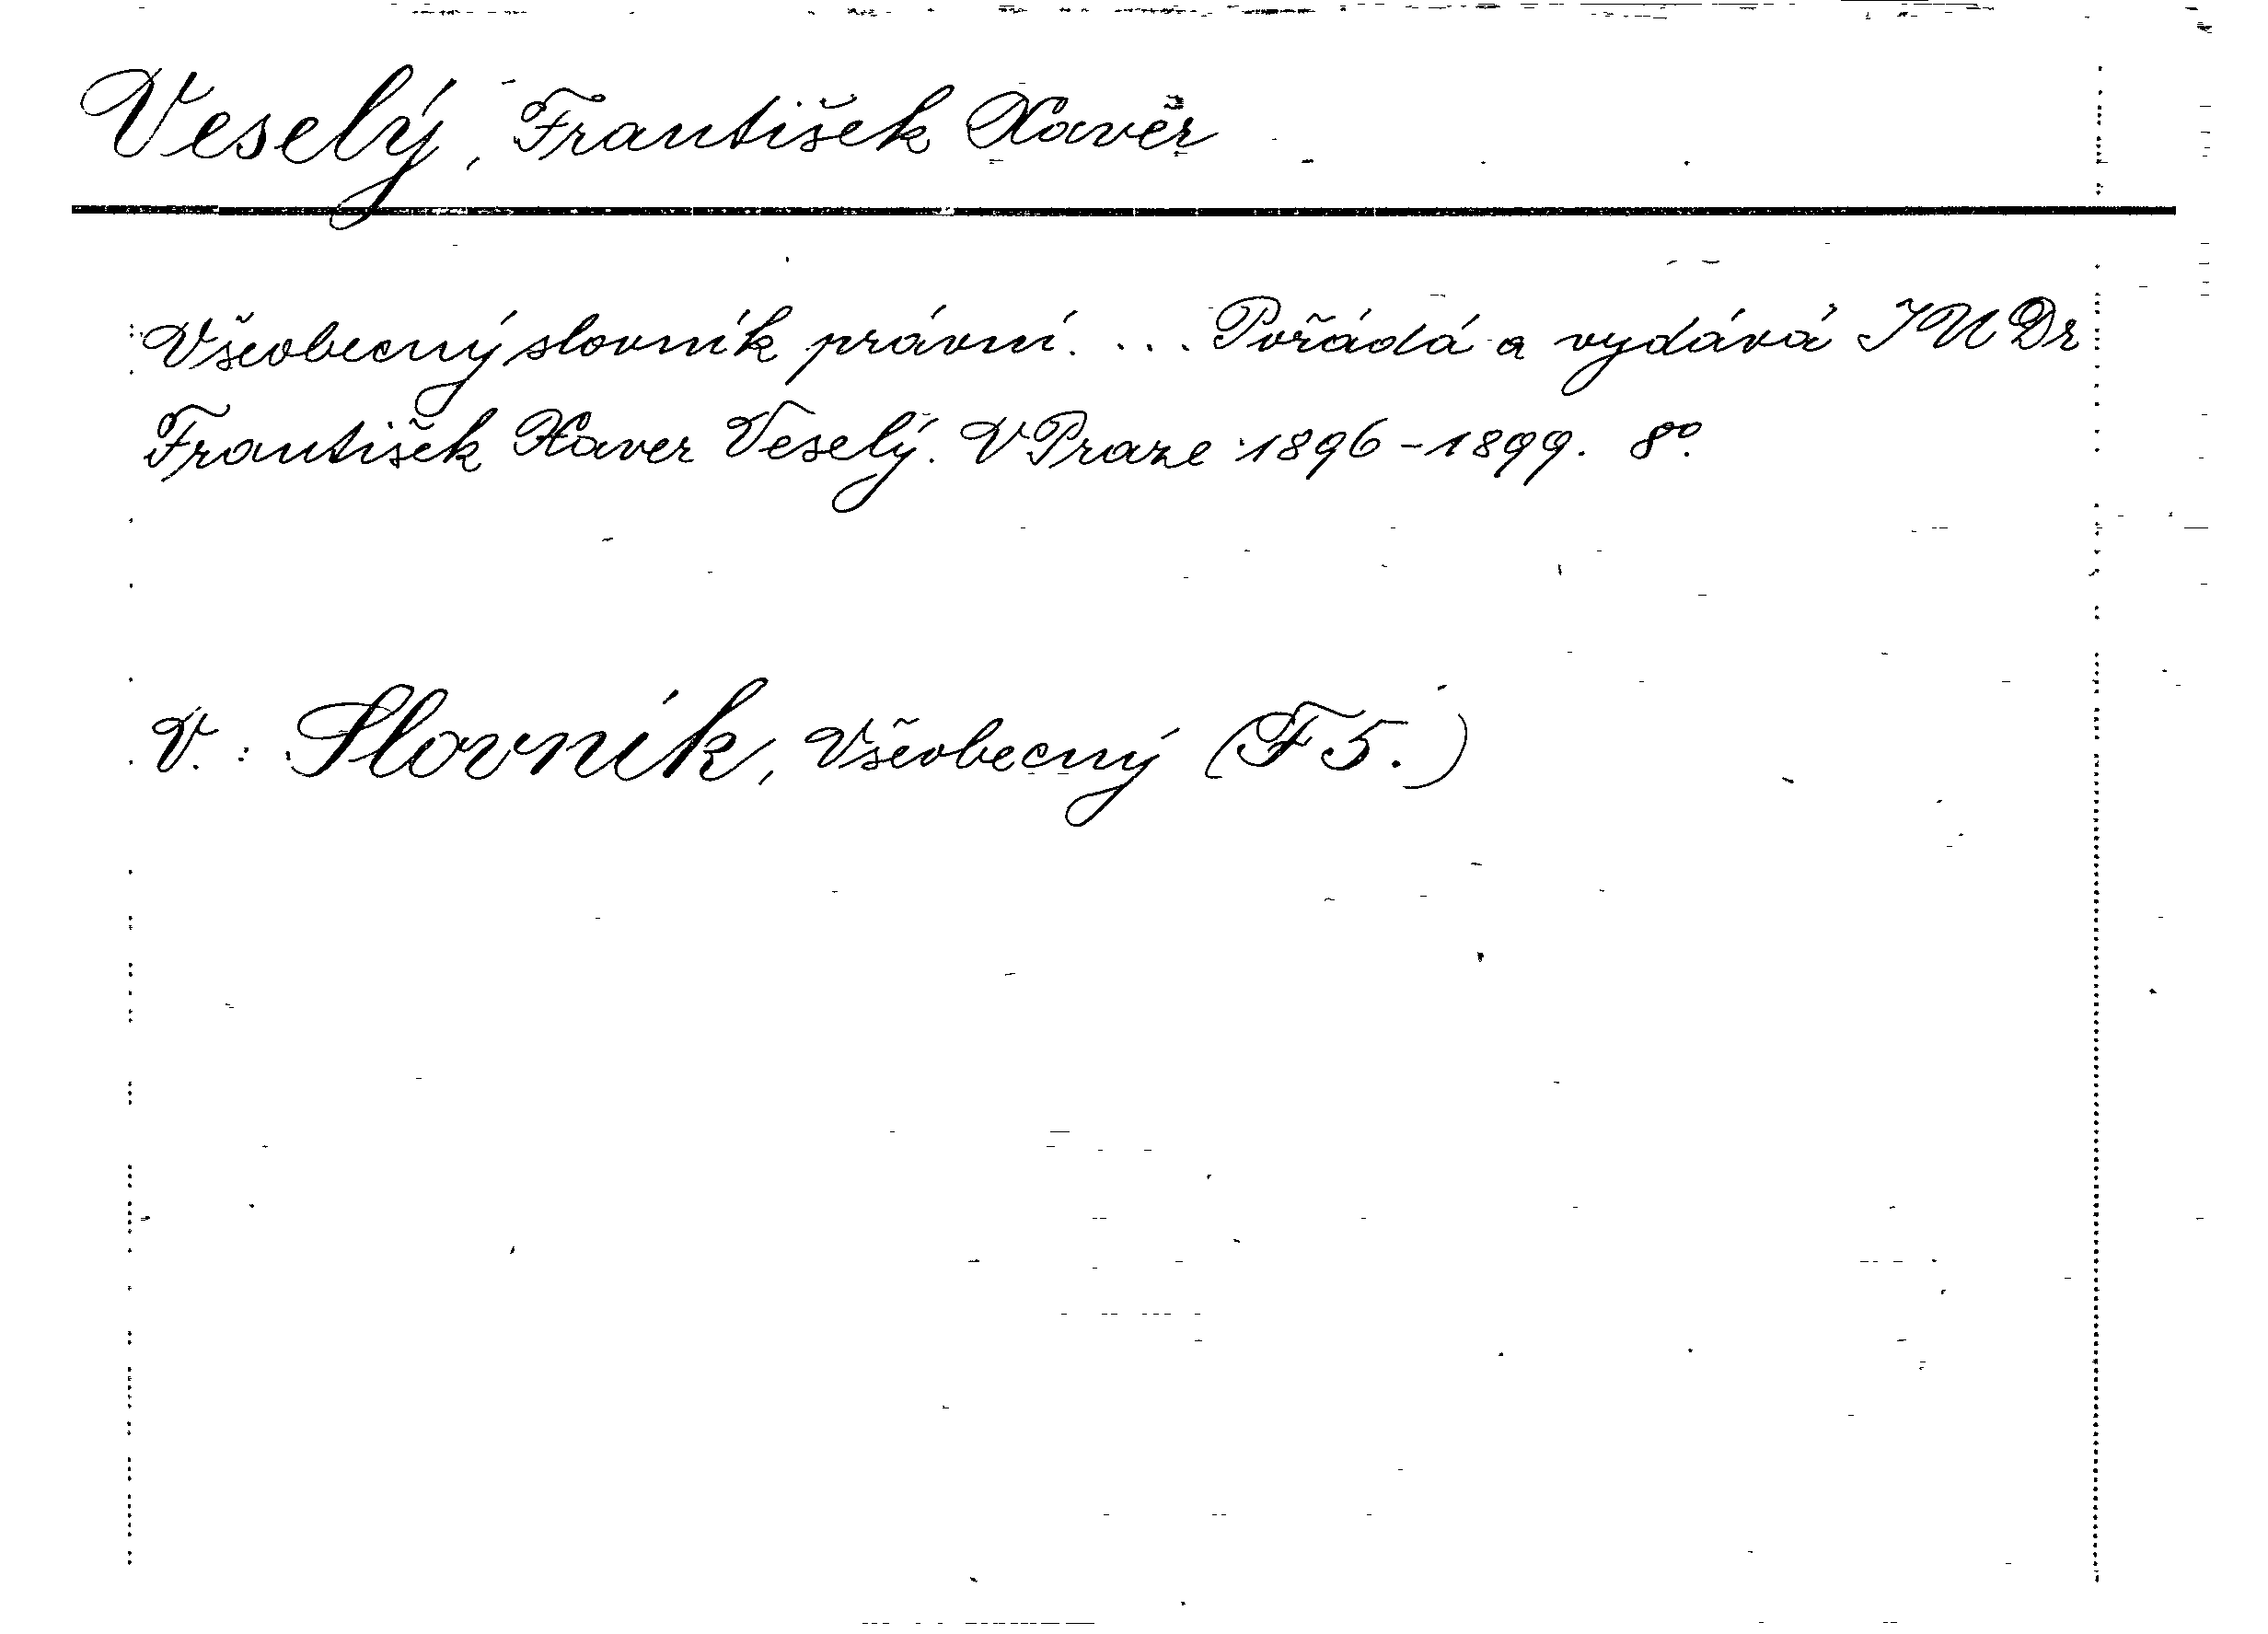 Veselý, František Xavěr
Všeobecný slovník právní. ... Pořádá a vydává JUDr
František Xaver Veselý. V Praze 1896-1899. 8°.
V.: Slovník, Všeobecný (F 5.)